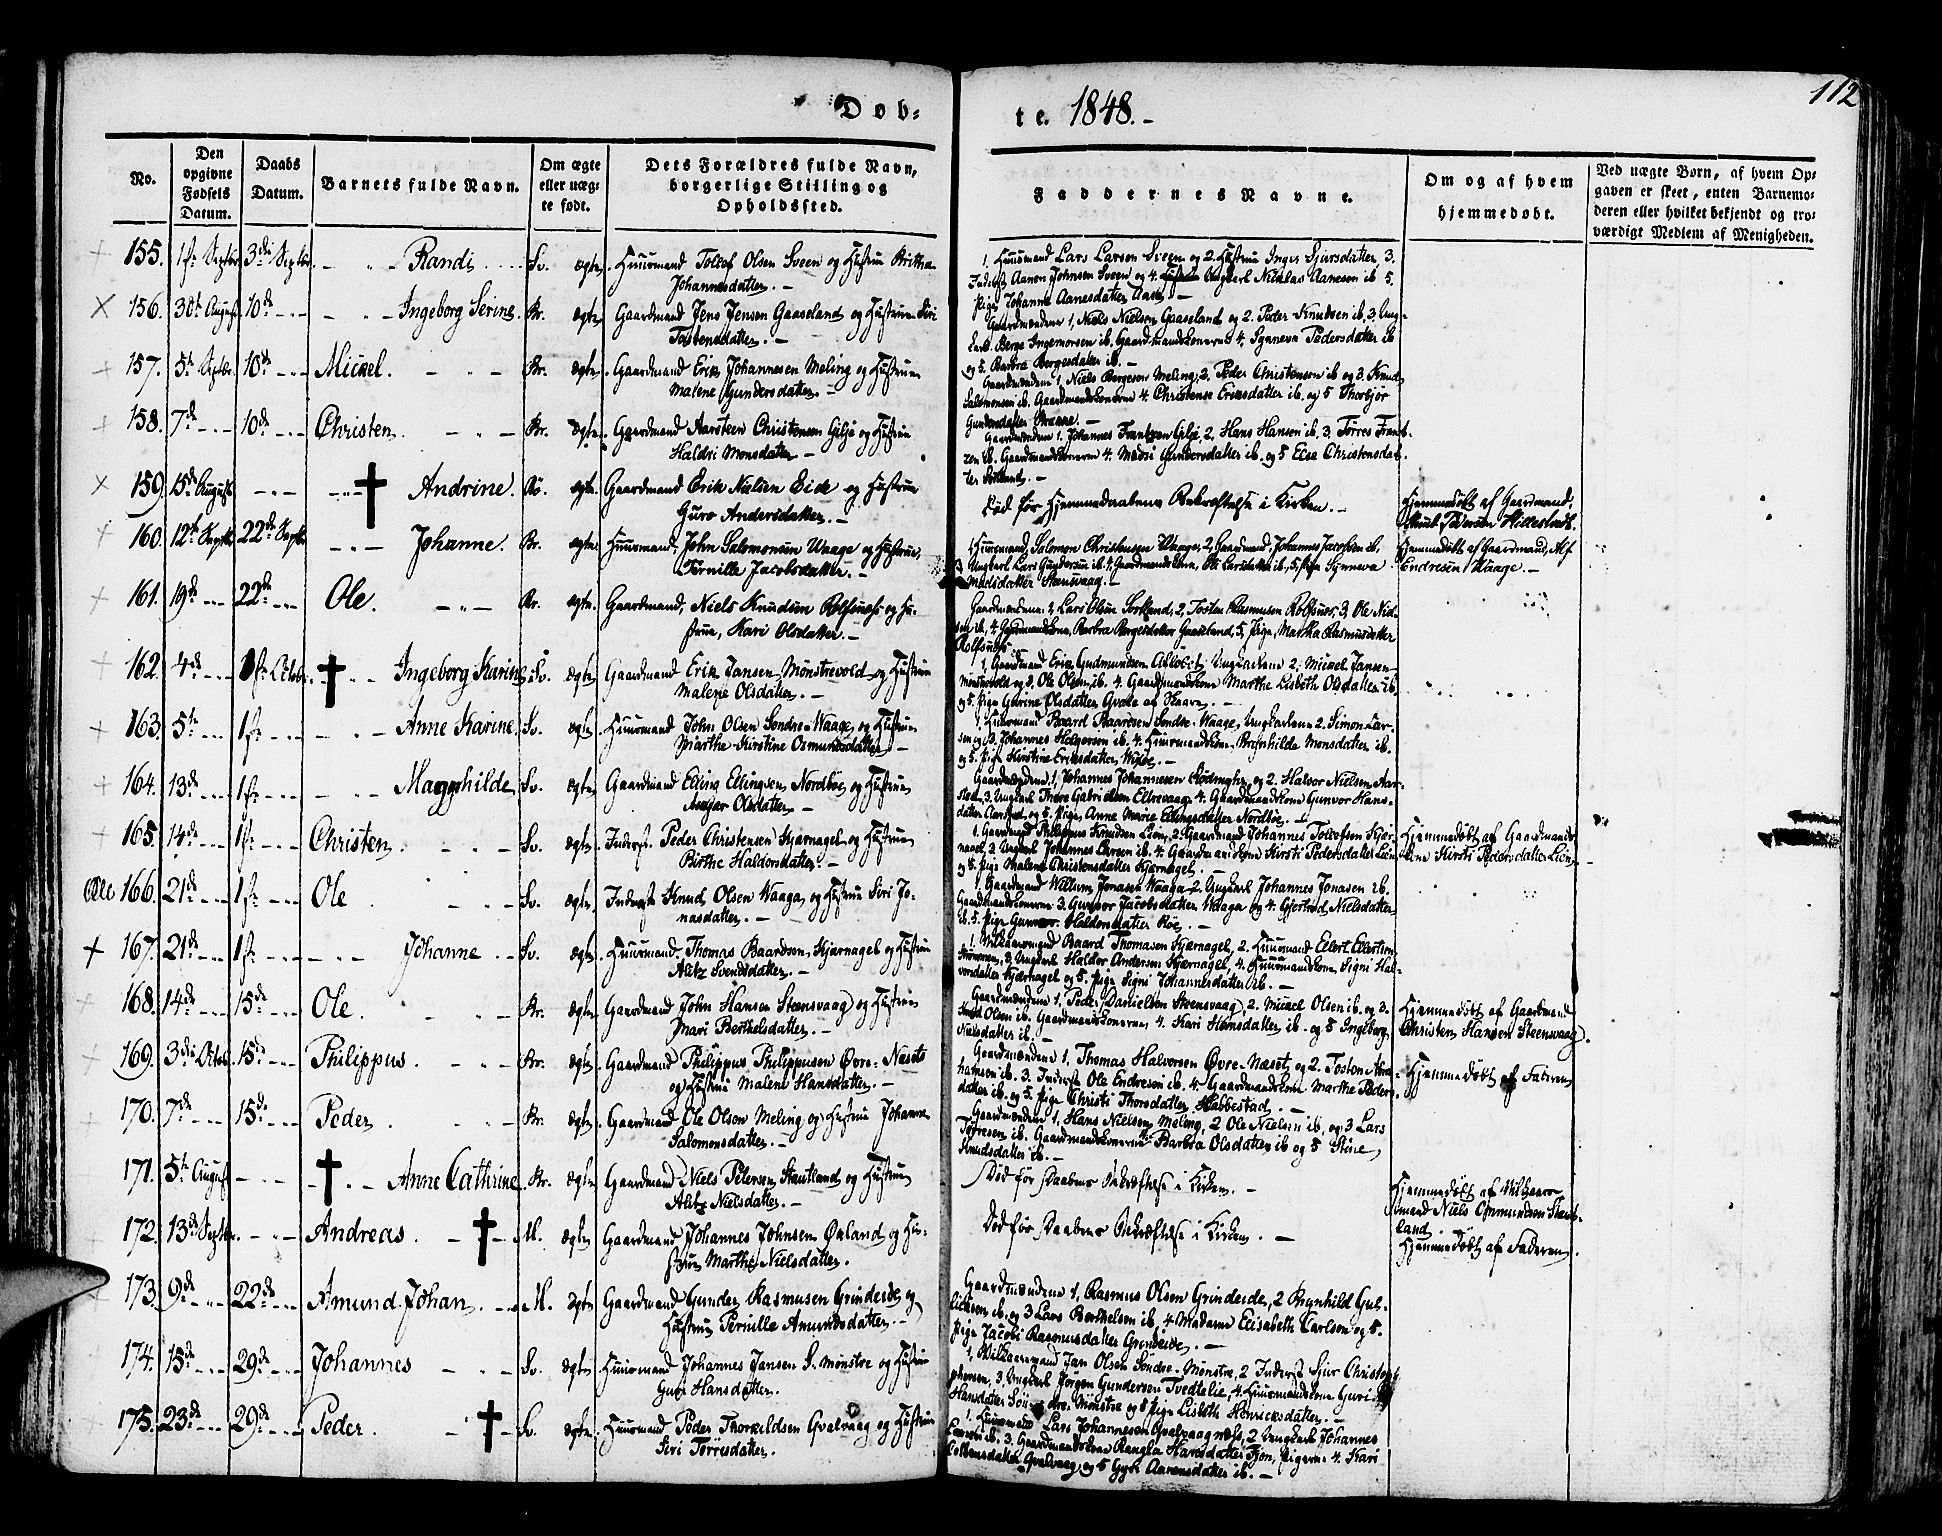 Døb-
te. 1848.-
112
No.
Den opgivne Fødsels Datum.
Daabs Datum.
Barnets fulde Navn.
Om ægte eller uæg-te født.
Dets Forældres fulde Navn, borgerlige Stilling og Opholdssted.
Faddernes Navne.
Om og af hvem hjemmedøbt.
Ved uægte Børn, af hvem Op-gaven er skeet, enten Barnemo-deren eller hvilket bekjendt og tro-værdigt Medlem af Menigheden.
155. 1ste Septbr. 3die Septbr. Randi Sv. ægte. Huusmand Tollef Olsen Sveen og Hustrue Britha
Johannesdatter.-
1, Huusmand Lars Larsen Sveen og 2. Hustrue Inger Sjursdatter 3.
Inderst Aanen Johnsen Sveen og 4. Ungkarl Nikolas Aanesen ib. 5.
Pige Johanne Aanesdatter
156. 30te August 10de Ingeborg Serine. Br. ægte. Gaardmand Jens Jensen Gaaseland og Hustrue Siri
Torstensdatter.-
Gaardmændene 1, Niels Nielsen Gaaseland og 2. Peder Knudsen ib, 3, Ung-
karl Berge Ingemorsen ib. Gaardmandskonerne 4. Synneva Pedersdatter ib
og 5. Barbra Borgesdatter ib.-
157. 5te Septbr. 10de Mickel. Br. ægte. Gaardmand Erik Johannesen Meling og Hustrue
Malene Gundersdatter.-
Gaardmændene 1, Niels Borgeson Meling, 2. Peder Christensen ib og 3. Knud
Salomonsen ib. Gaardmandskonerne 4. Christense Eriksdatter ib. og 5 Thorbjør
Gundersdatter
158. 7de 10de Christen. Br. ægte. Gaardmand Aarsteen Christensen Gilje og Hustrue
Haldri Monsdatter.-
Gaardmændene 1. Johannes Frantzen Gilje, 2. Hans Hansen ib, 3. Torres Frant-
zen ib. Gaardmandskonerne 4. Madsi Gundersdatter ib. og 5 Else Christensdat-
ter
159. 15de August Andrine. Br. ægte. Gaardmand Erik Nielsen Eide og Hustrue
Guro Andersdatter.-
Død før Hjemmedaabens Bekræftelse i Kirken.-
Hjemmedøbt af Gaardmand,
Knud Pedersen Hillestvedt.
160. 12te Septbr 22de Septbr Johanne. Br. ægte. Huusmand, John Salomonsen Waage og Hustrue,
Pernille Jacobsdatter.-
1, Huusmand, Salomon Christensen Waage, 2, Gaardmand, Johannes Jacobsen ib,
3, Ungkarl Lars Gundersen ib. 4, Gaardmandskone, ib, 5, Pige Synneva
Madsdatter Stensvaag.-
Hjemmedøbt af Gaardmand, Alf
Endresen Waage.-
161. 19de 22de Ole. Br. ægte. Gaardmand, Niels Knudsen Rolfsnæs og Hu-
strue, Kari Olsdatter.-
Gaardmændene 1, Lars Olsen Sortland, 2, Tosten Rasmussen Rolfsnæs, 3, Ole Niel-
sen ib, 4, Gaardmandskone, Barbra Borgesdatter Gaaseland, 5, Pige, Martha Rasmusdatter
Rolfsnæs.-
162. 4de 1ste Octobr. Ingeborg Karine Sv. ægte. Gaardmand Erik Jansen Mønstrevold og Hustrue
Malene Olsdatter.-
1, Gaardmand Erik Gudmundsen Ungkarlene 2, Mickel Jansen
Mønstrevold og 3. Ole Olsen ib. 4. Gaardmandskone Marthe Lisbeth Olsdatter ib
og 5. Pige Gurine Olsdatter
163. 5te 1ste Anne Karine. Sv. ægte. Huusmand John Olsen Søndre-Waage og Hustrue
Marthe Kirstine Osmundsdatter.-
1, Huusmand Baard Baardsen Søndre-Waage, Ungkarlene 2. Simon Lar-
sen og 3. Johannes Helgesen ib. 4. Huusmandskone Brynhilde Monsdatter ib.
og 5. Pige Kirstine Eriksdatter
164. 13de 1ste Magnhilde Sv. ægte. Gaardmand Elling Ellingsen Nordbøe og Hustrue
Olsdatter.-
Gaardmændene 1, Johannes Johannesen og 2. Halvor Nielsen
3, Ungkarl Thore Gabrielsen Ellrevaag 4. Gaardmandskone Gunvor Hans-
datter og 5. Pige Anne Marie Ellingsdatter Nordbøe.-
165. 14de 1ste Christen. Sv. ægte. Inderst Peder Christensen Hjærnagel og Hustrue
Birthe Haldorsdatter.-
1. Gaardmand Philippus Knudsen Lien, 2. Gaardmand Johannes Tollefsen Hjer-
nagel, 3 Ungkarl Johannes Larsen ib. 4. Gaardmandskone Kirsti Pedersdatter Lien
og 5. Pige Malene Christensdatter Hjernagel.-
Hjemmedøbt af Gaardmands-
kone Kirsti Pedersdatter Lien.-
166. 21de 1ste Ole Sv. ægte. Inderst Knud Olsen Waage og Hustrue Siri Jo-
nasdatter.-
1. Gaardmand Willum Jonasen Waage 2. Ungkarl Johannes Jonasen ib.
Gaardmandskonerne 3. Gunvor Jacobsdatter Waage og 4. Gjertrud Nielsdatter
ib. 5. Pige Gunvor Haldorsdatter Røe.-
167. 21de 1ste Johanne Sv. ægte. Huusmand Thomas Baardsen Hjærnagel og Hustrue
Alitz Svendsdatter.-
1. Vilkaarsmand Baard Thomasen Hjærnagel, 2. Huusmand Ellert Ellertsen
3, Ungkarl Haldor Andersen Hjærnagel, 4. Huusmandskone Signi Hal-
vordatter Hjærnagel og 5. Pige Signi Johannesdatter ib.-
168. 14de 15de Ole. Br. ægte. Gaardmand John Hansen Steensvaag og Hustrue
Mari Berthelsdatter.-
Gaardmændene 1, Peder Danielsen Steensvaag, 2. Mickel Olsen ib. og 3.
Knud Olsen ib. Gaardmandskonerne, 4. Kari Hansdatter ib. og 5 Ingeborg
Nielsdatter ib.-
Hjemmedøbt af Gaardmand
Christen Hansen Steensvaag.
169. 3die Octob. 15de Philippus. Br. ægte. Gaardmand Philippus Philippusen Øvre-Næsets
og Hustrue Malene Hansdatter.-
Gaardmændene 1, Thomas Halvorsen Øvre-Næset og 2, Tosten Abra-
hamsen ib. 3. Inderst Ole Endresen ib. 4. Gaardmandskone Marthe Peders-
datter ib. og 5. Pige Christi Thorsdatter Habbestad.-
Hjemmedøbt af Faderen
170. 7de 15de Peder Br. ægte. Gaardmand Ole Olsen Meling og Hustrue Johanne
Salomonsdatter.-
Gaardmændene 1, Hans Nielsen Meling, 2 Ole Nielsen ib. og 3 Lars
Torresen ib. Gaardmandskonerne 4. Barbra Olsdatter ib og 5 Stine
Knudsdatter ib.-
171. 5te August Anne Cathrine. Br. ægte. Gaardmand Niels Petersen Stautland og Hustrue
Alitz Nielsdatter.-
Død før Daabens Bekræftelse i Kirken.-
Hjemmedøbt af Vilkaars-
mand Niels Ommundsen Staut-
land.
172. 13de Septbr. Andreas. M. ægte. Gaardmand Johannes Johnsen Øvland og Hu-
strue Marthe Nielsdatter.
Død før Daabens Bekræftelse i Kirken.-
Hjemmedøbt af Faderen.
173. 9de 22de Amund Johan M. ægte. Gaardmand Gunder Rasmusen Grindeide og
Hustrue Pernille Amundsdatter.-
Gaardmændene 1, Rasmus Olsen Grindeide, 2 Brynhild Gul-
licksen ib. og 3 Lars Berthelsen ib, 4 Madame Elisabeth Carlson og 5.
Pige Jacobi Rasmusdatter Grindeide.-
174. 15de 29de Johannes Sv. ægte. Huusmand Johannes Jansen S. Mønstre og Hustrue
Guri Hansdatter.
1, Vilkaarsmand Jan Olsen Søndre-Mønstre, 2 Inderst Sjur Christop-
phersen, 3, Ungkarl Jørgen Gundersen Tvedtelie, 4. Huusmandskone Guri
Hansdatter Søndre-Mønstre og 5 Pige Lisbeth Henricksdatter.-
175. 23de 29de Peder. Sv. ægte. Huusmand Peder Thorkildsen Qvalvaag og Hustrue
Siri Torresdatter.
1. Huusmand Lars Johannesen Qvalvaagnæss, 2 Ungkarl Johannes
Larsen ib. 3. Gaardmandskone Rangla Hansdatter Fjon, Pigerne 4. Kari
Qvalvaag og 5 Gyri Aanensdatter ib.-